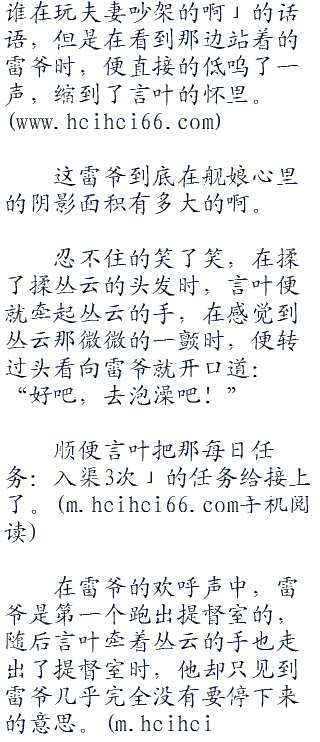 谁在玩夫妻吵架的啊」的话
语，但是在看到那边站着的
雷爷时，便直接的低呜了一
声，缩到了言叶的怀里。
(www.hcihci66.com)
这雷爷到底在舰娘心里
的阴影面积有多大的啊。
忍不住的笑了笑，在揉
了揉丛云的头发时，言叶便
就牵起丛云的手，在感觉到
丛云那微微的一颤时，便转
过头看向雷爷就开口道：
“好吧，去泡澡吧！”
顺便言叶把那每日任
务：入渠3次」的任务给接上
了。(m.hcihci66.com手机阅
读)
在雷爷的欢呼声中，雷
爷是第一个跑出提督室的，
随后言叶牵着丛云的手也走
出了提督室时，他却只见到
雷爷几乎完全没有要停下来
的意思。(m.hcihci